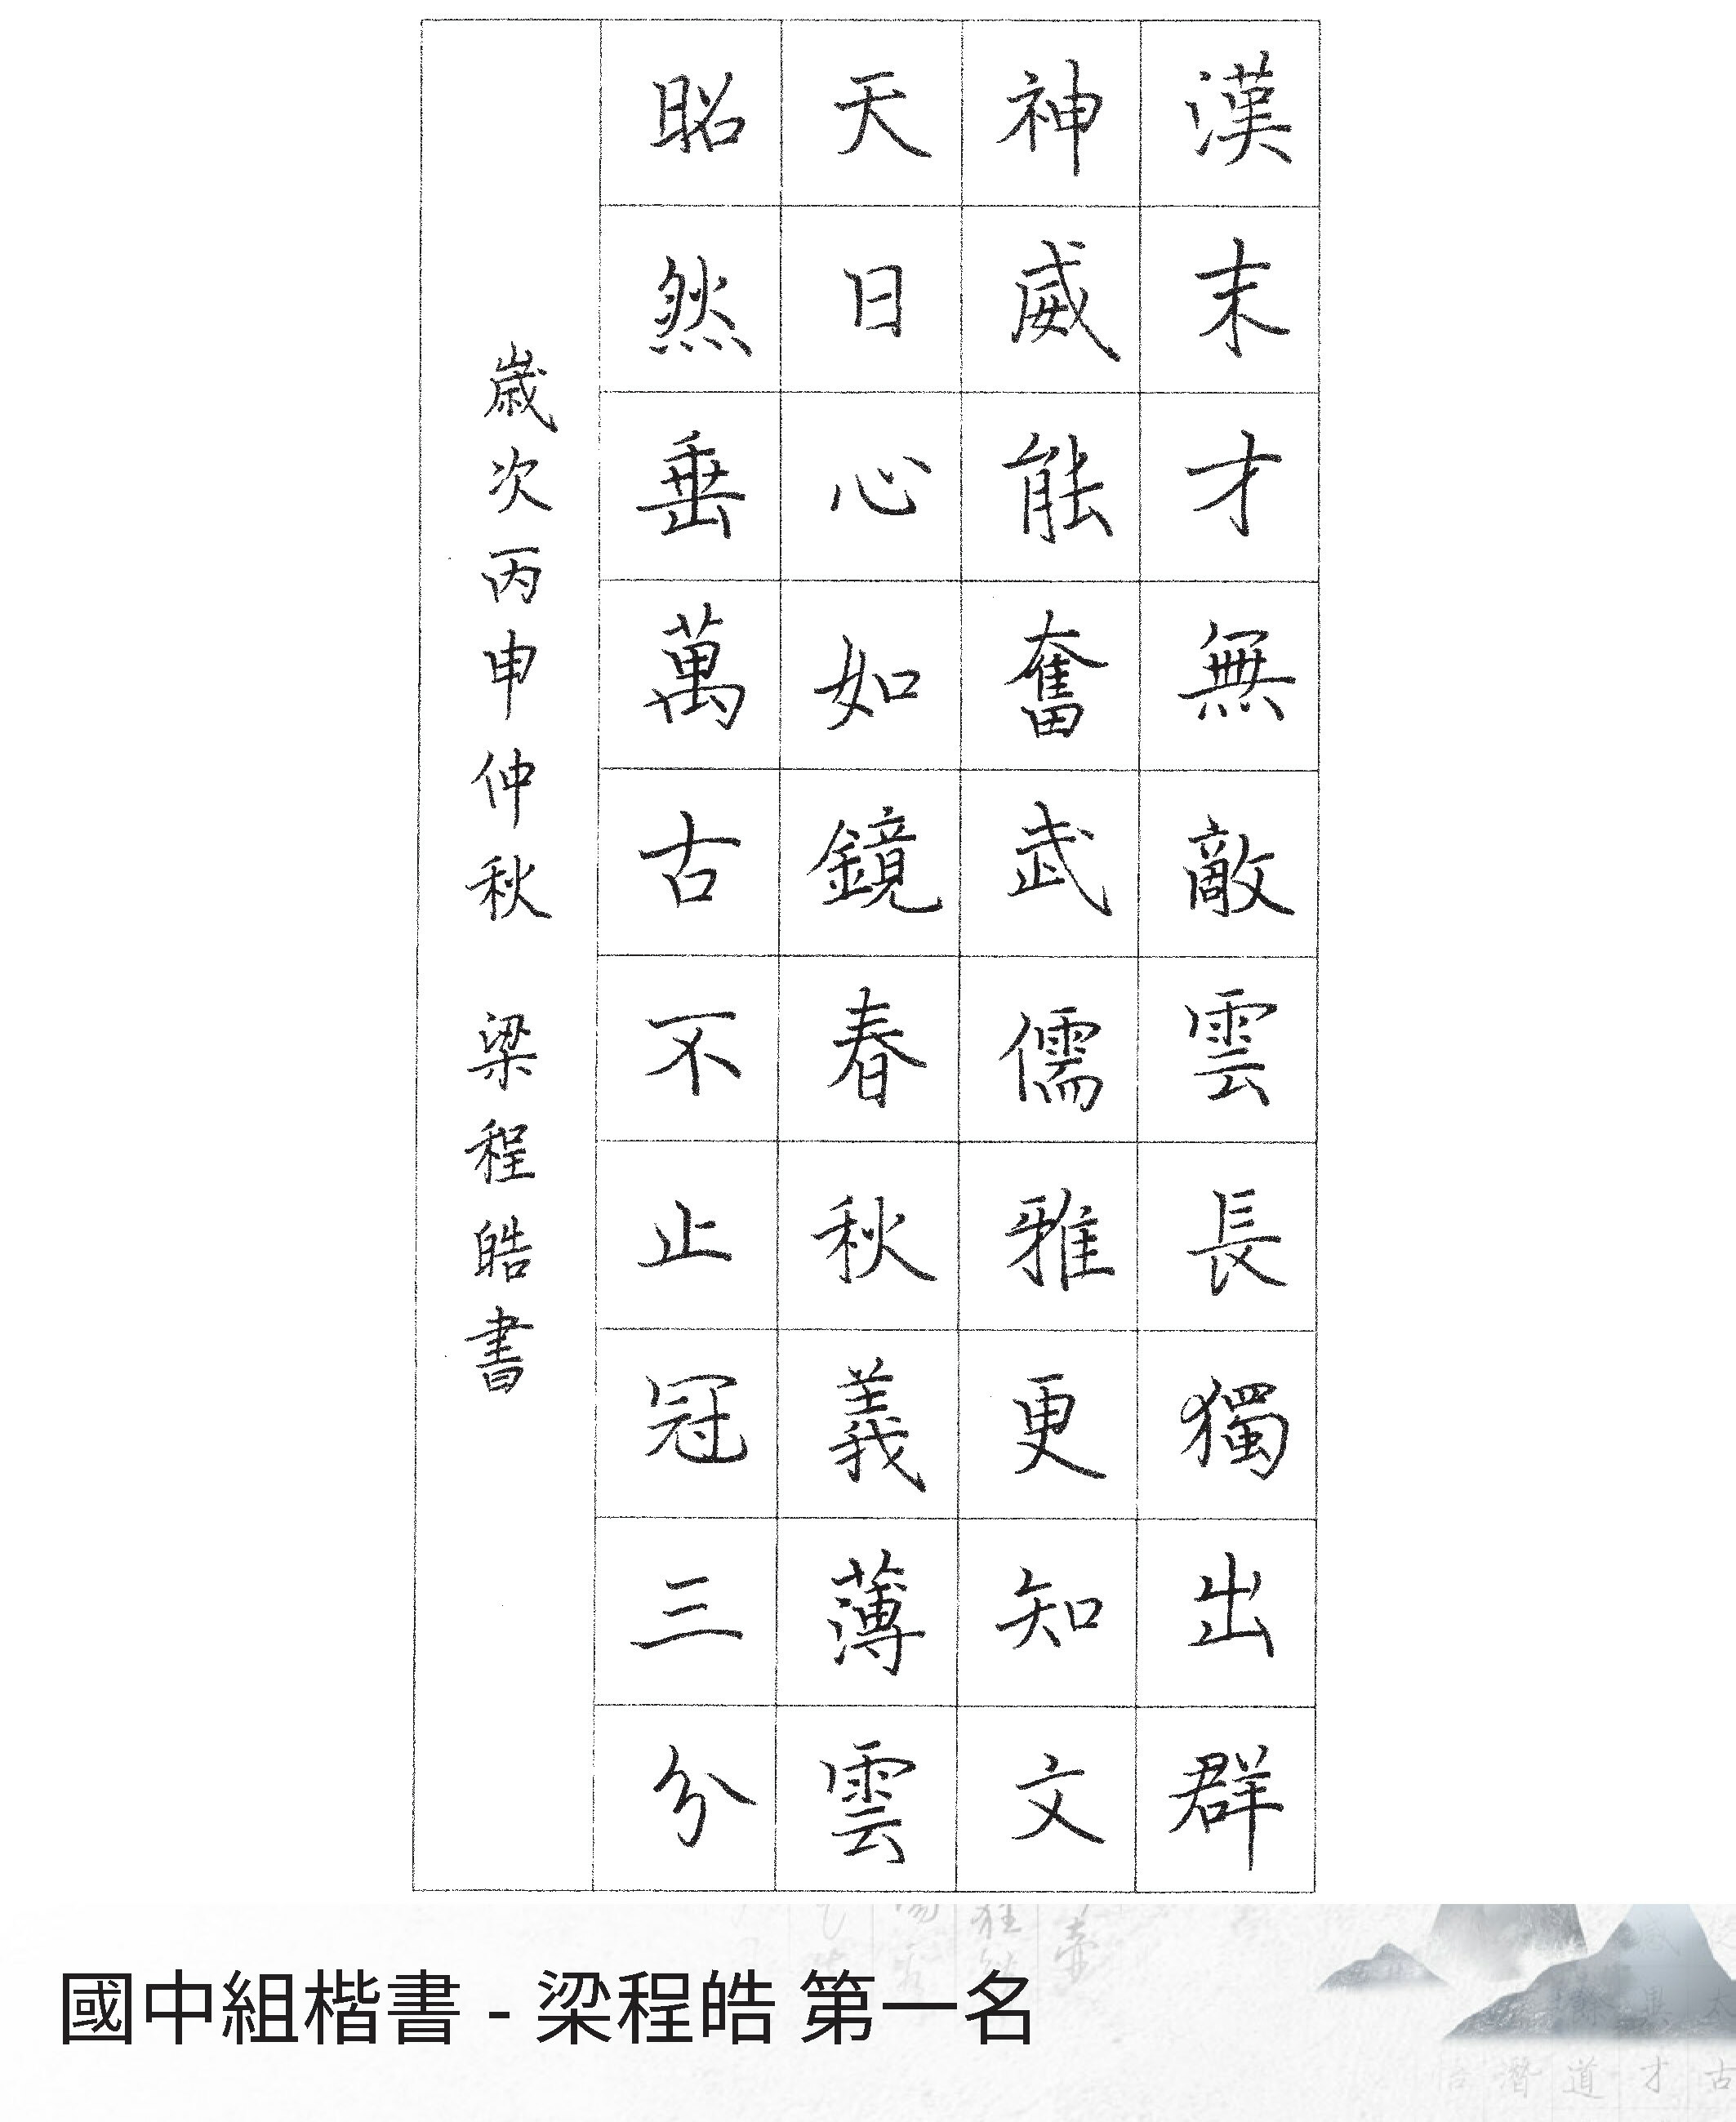 漢末才無敵雲長獨出群
神威能奮武儒雅更知文
天日心如鏡春秋義薄雲
昭然垂萬古不止冠三分
歲次丙申仲秋 梁程皓書
國中組楷書 - 梁程皓 第一名